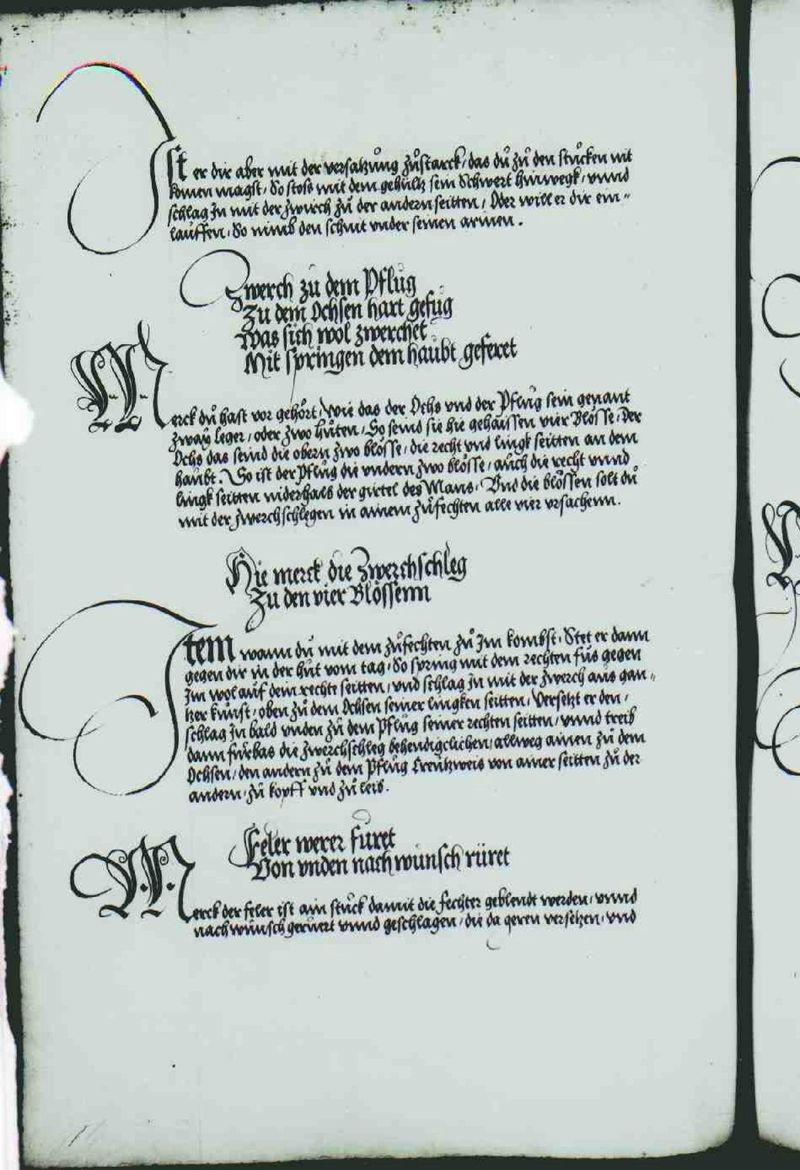 Ist er dir aber mit der versatzung zůstarck / das dů zů den stůcken nit
komen magst / So stoß mit dem gehůltz sein Schwert hinwegk / vnnd
schlag In mit der zwirch zů der andern seitten / Oder will er dir ein=
lauffen / So nimb den schnit vnder seinen armen .
Zwerch zů dem Pflůg
Zů dem Ochsen hart gefůg
Was sich wol zwerchet
Mit springen dem haůbt geferet
Merck dů hast vor gehört / Wie das der Ochs vnd der Pflůg sein genant
zwaÿ leger / oder zwo hůten / So seind sie hie gehaissen vier Blösse / Der
Ochs das seind die obern zwo blösse / die recht vnd lingk seitten an dem
haůbt . So ist der Pflůg die vndern zwo blösse / aůch die recht vnnd
lingk seitten niderhalb der girtel des Mans / Vnd die blössen solt dů
mit der zwerchschlegen in ainem zůfechten alle vier vrsachenn .
Hie merck die Zwerchschleg
Zů den vier Blössenn
Item wann dů mit dem zůfechten zů Im kombst / Stet er dann
gegen dir in der hůt vom tag / So spring mit dem rechten fůs gegen
Im wol aůf dem rechte seitten / vnd schlag In mit der zwerch aůs gan=
tzer kůnst / oben zů dem Ochsen seiner lingken seitten / Versetzt er den /
schlag In bald vnden zů dem Pflůg seiner rechten seitten / vnnd treib
dann fůrbas die zwerchschleg behendigclichen / allweg ainen zů dem
Ochsen / den andern zů dem Pflůg Creůtzweis von ainer seitten zů der
andern / zů kopff vnd zů leib .
Feler werer fůret
Von vnden nach wůnsch růret
Merck der feler ist ain stůck damit die fechter geblendt werden / vnnd
nach wůnsch gerůert vnnd geschlagen / die da geren versetzen / vnd